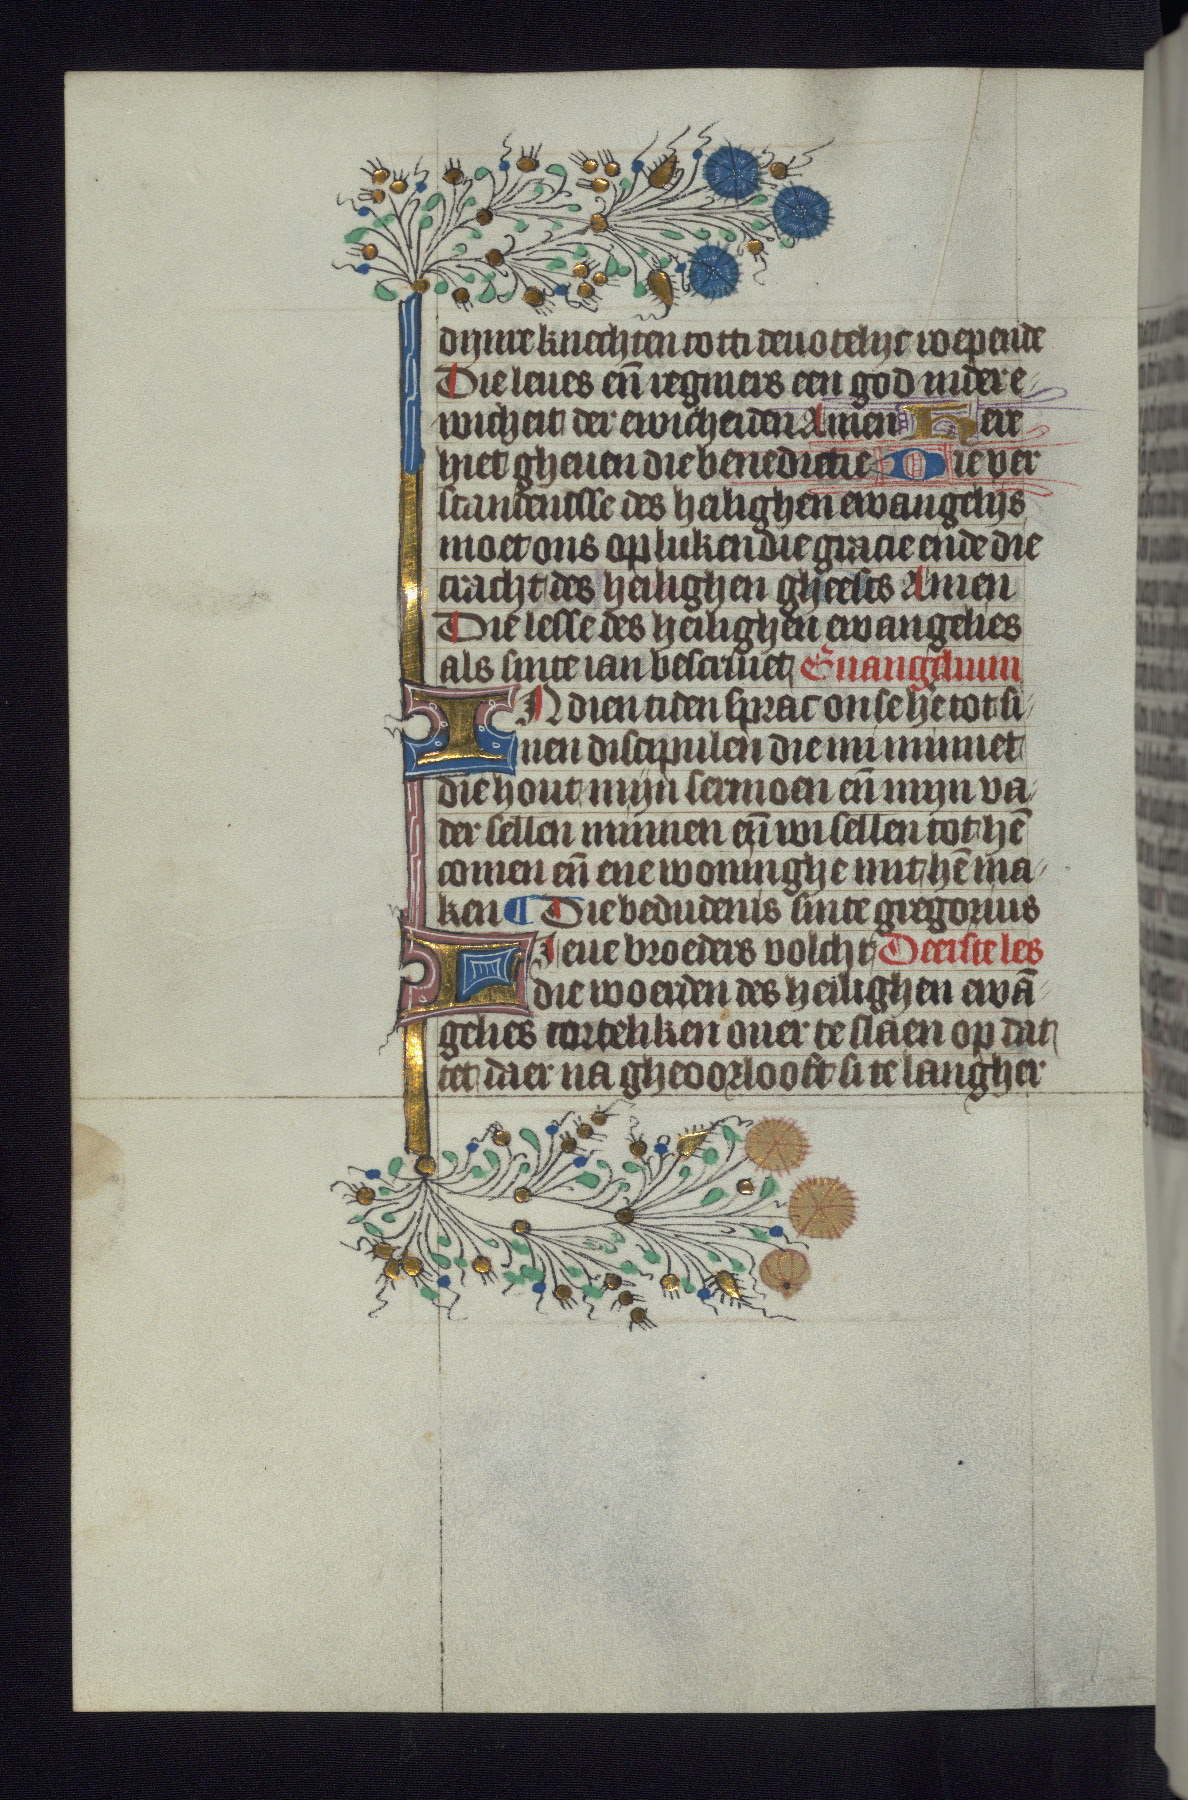 dijnre knechten tot ti deuotelijc roepende
Die leues eñ regniers een god inder e
wicheit der ewicheiden Amen Here
hiet gheuen die benedictie Die ver
standenisse des heilighen ewangelijs
moet ons opluken die gracie ende die
cracht des heilighen gheests Amen
Die lesse des heilighen ewangelies
als sinte ian bescriuet Euangelium
IN dien tiden sprac onse he tot si
nen discipulen die mi minnet
die hout mijn sermoen eñ mijn va
der sellen minnen eñ wi sellen tot hē
comen eñ ene woninghe mit hē ma
ken Die bedudenis sinte gregorius
Lieue broeders volcht Deerste les
die woerden des heilighen ewā
gelies corteliken ouer te slaen op dat
tet daer na gheoorlooft si te langher